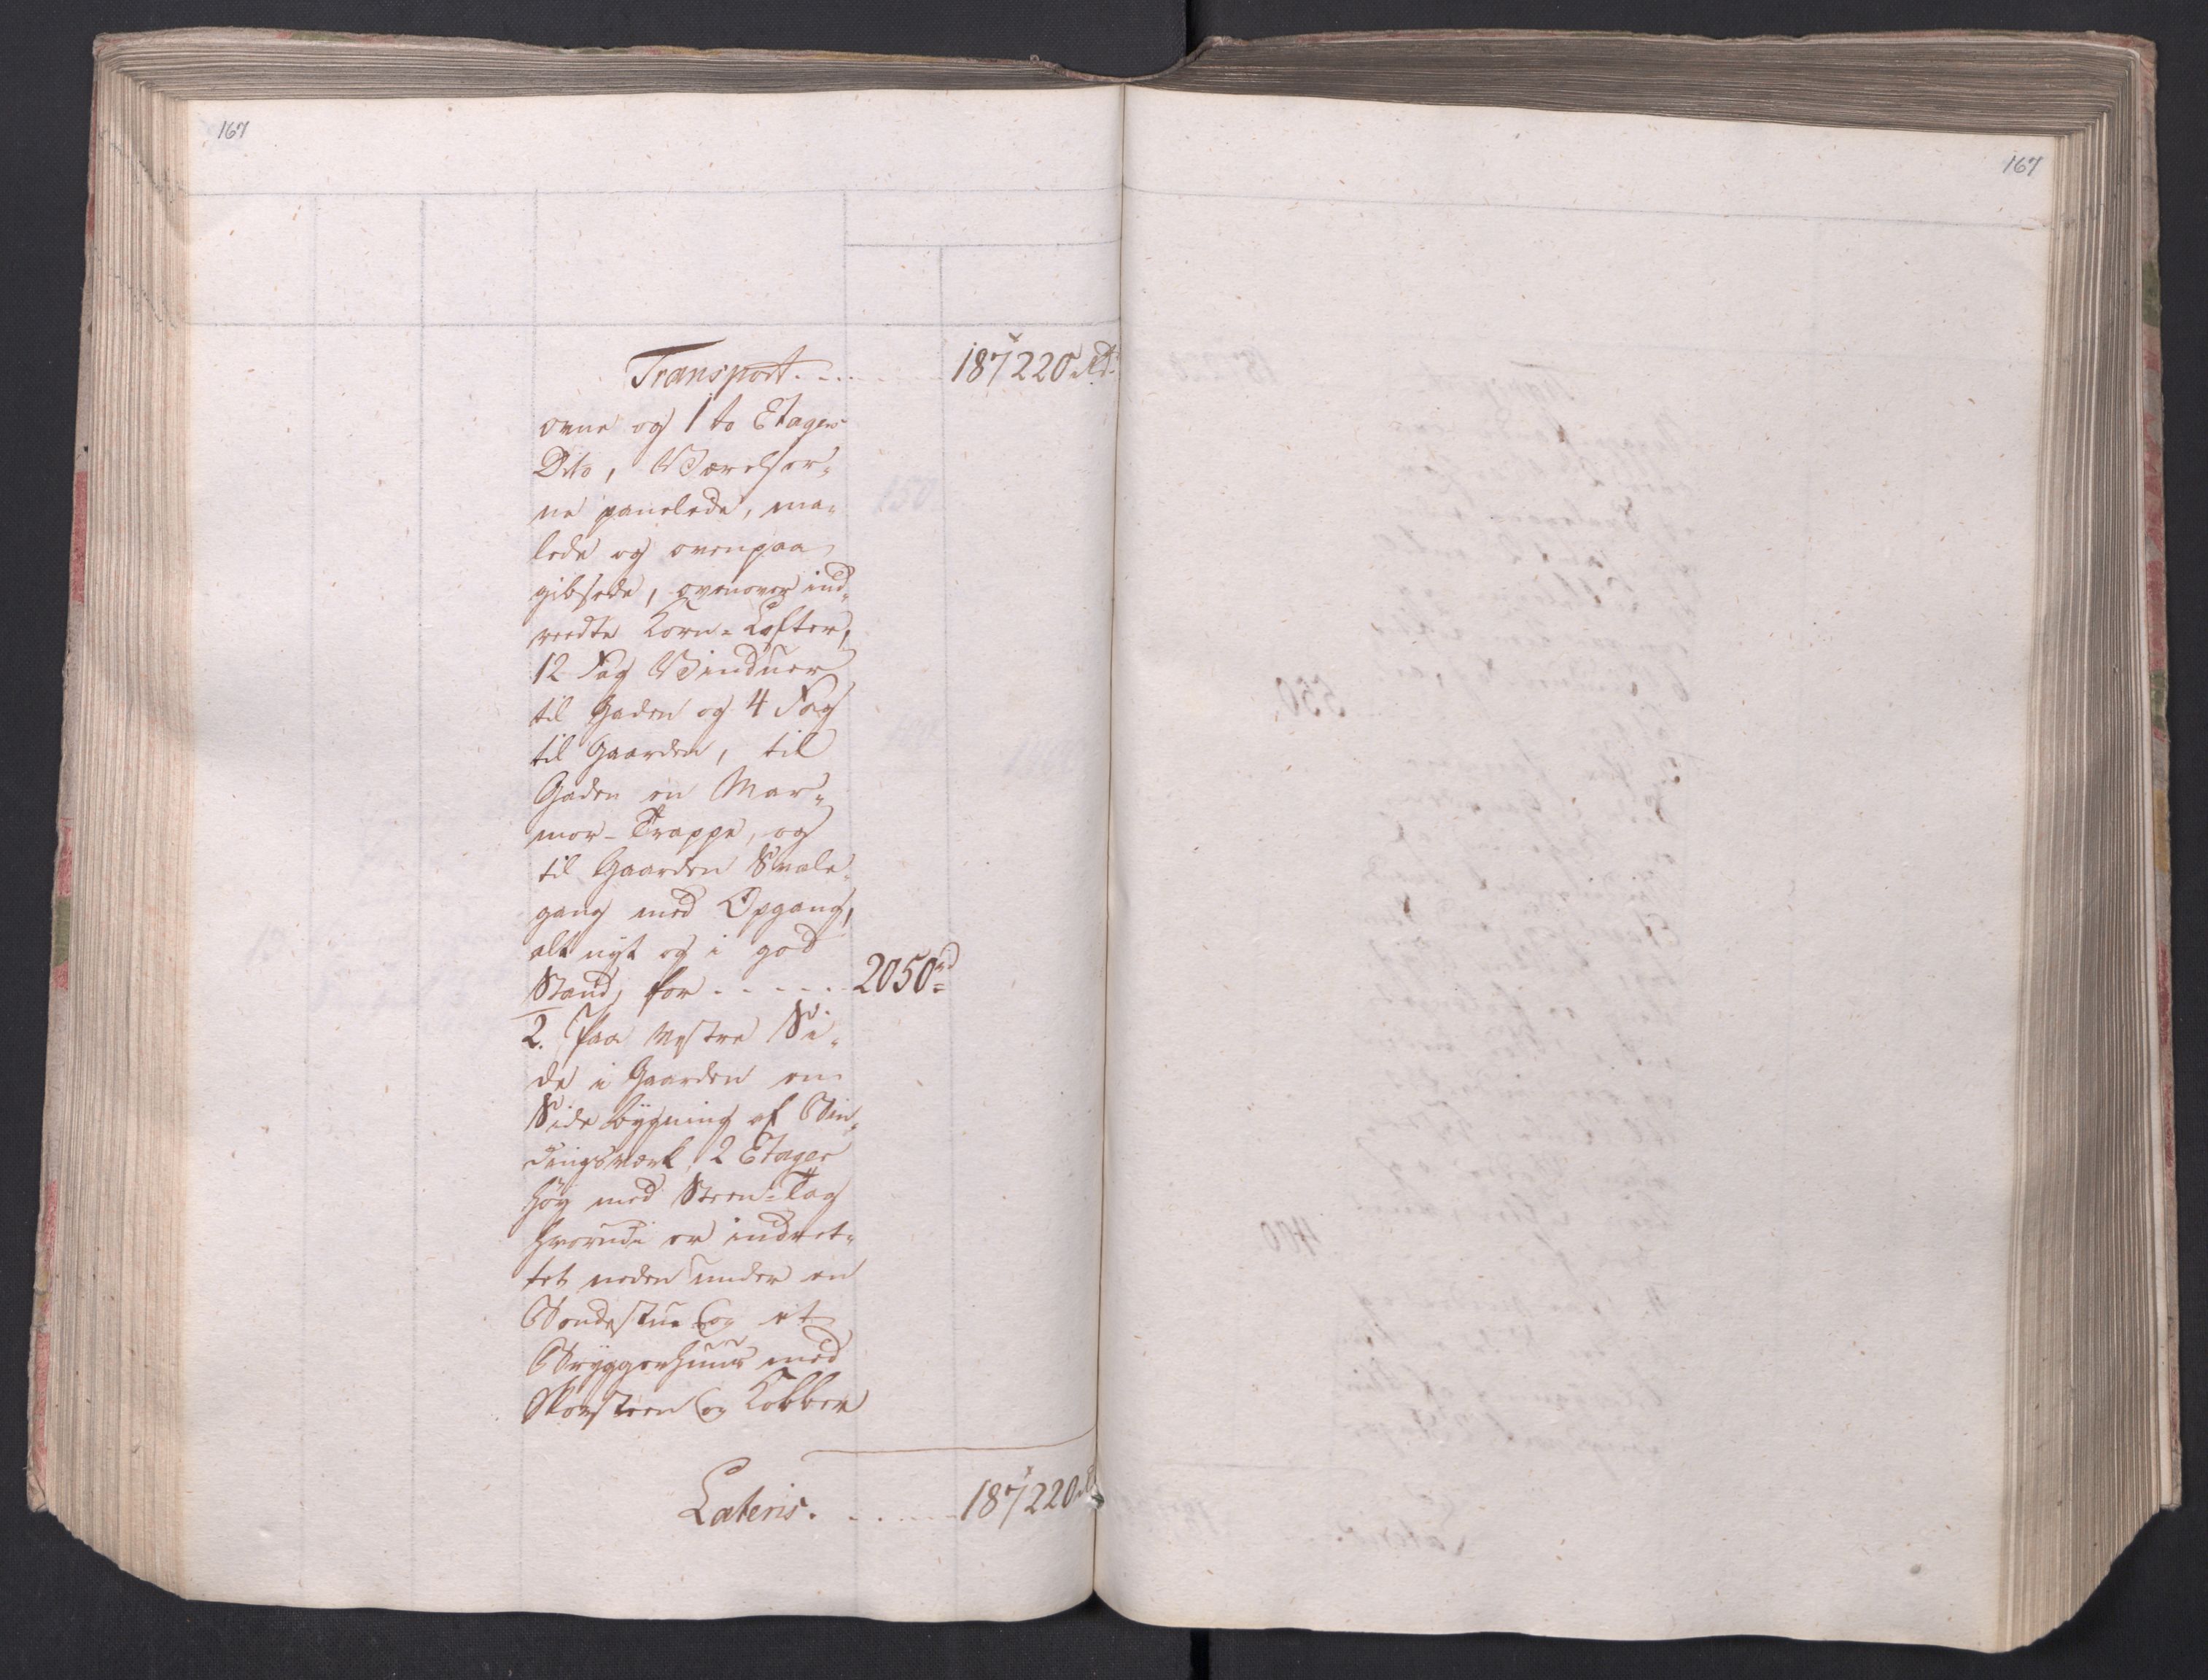 167
167
Transport. - . . . . . 187220 Rd.
ovne og 1 to Etages
Dito, Værelser-
ne panelede, ma-
lede og ovenpaa
gibsede, ovenover ind-
reedte Korn-Lofter,
12 Fag Vinduer
til Gaden og 4 Fag
til Gaarden, til
Gaden en Mar-
mor-Trappe, og
til Gaarden Svale-
gang med Opgang,
alt nyt og i god
Stand, for . - . - . . 2050 rd
2. Paa vestre Si-
de i Gaarden en
Sidebygning af Bin-
dingsværk, 2 Etager
høy med Steen-Tag
hvorudi er indret-
tet neden under en
Borgestue og et
Bryggerhuus med
Skorsteen og Kobber
Lateris. . . . . . . 187220 Rd